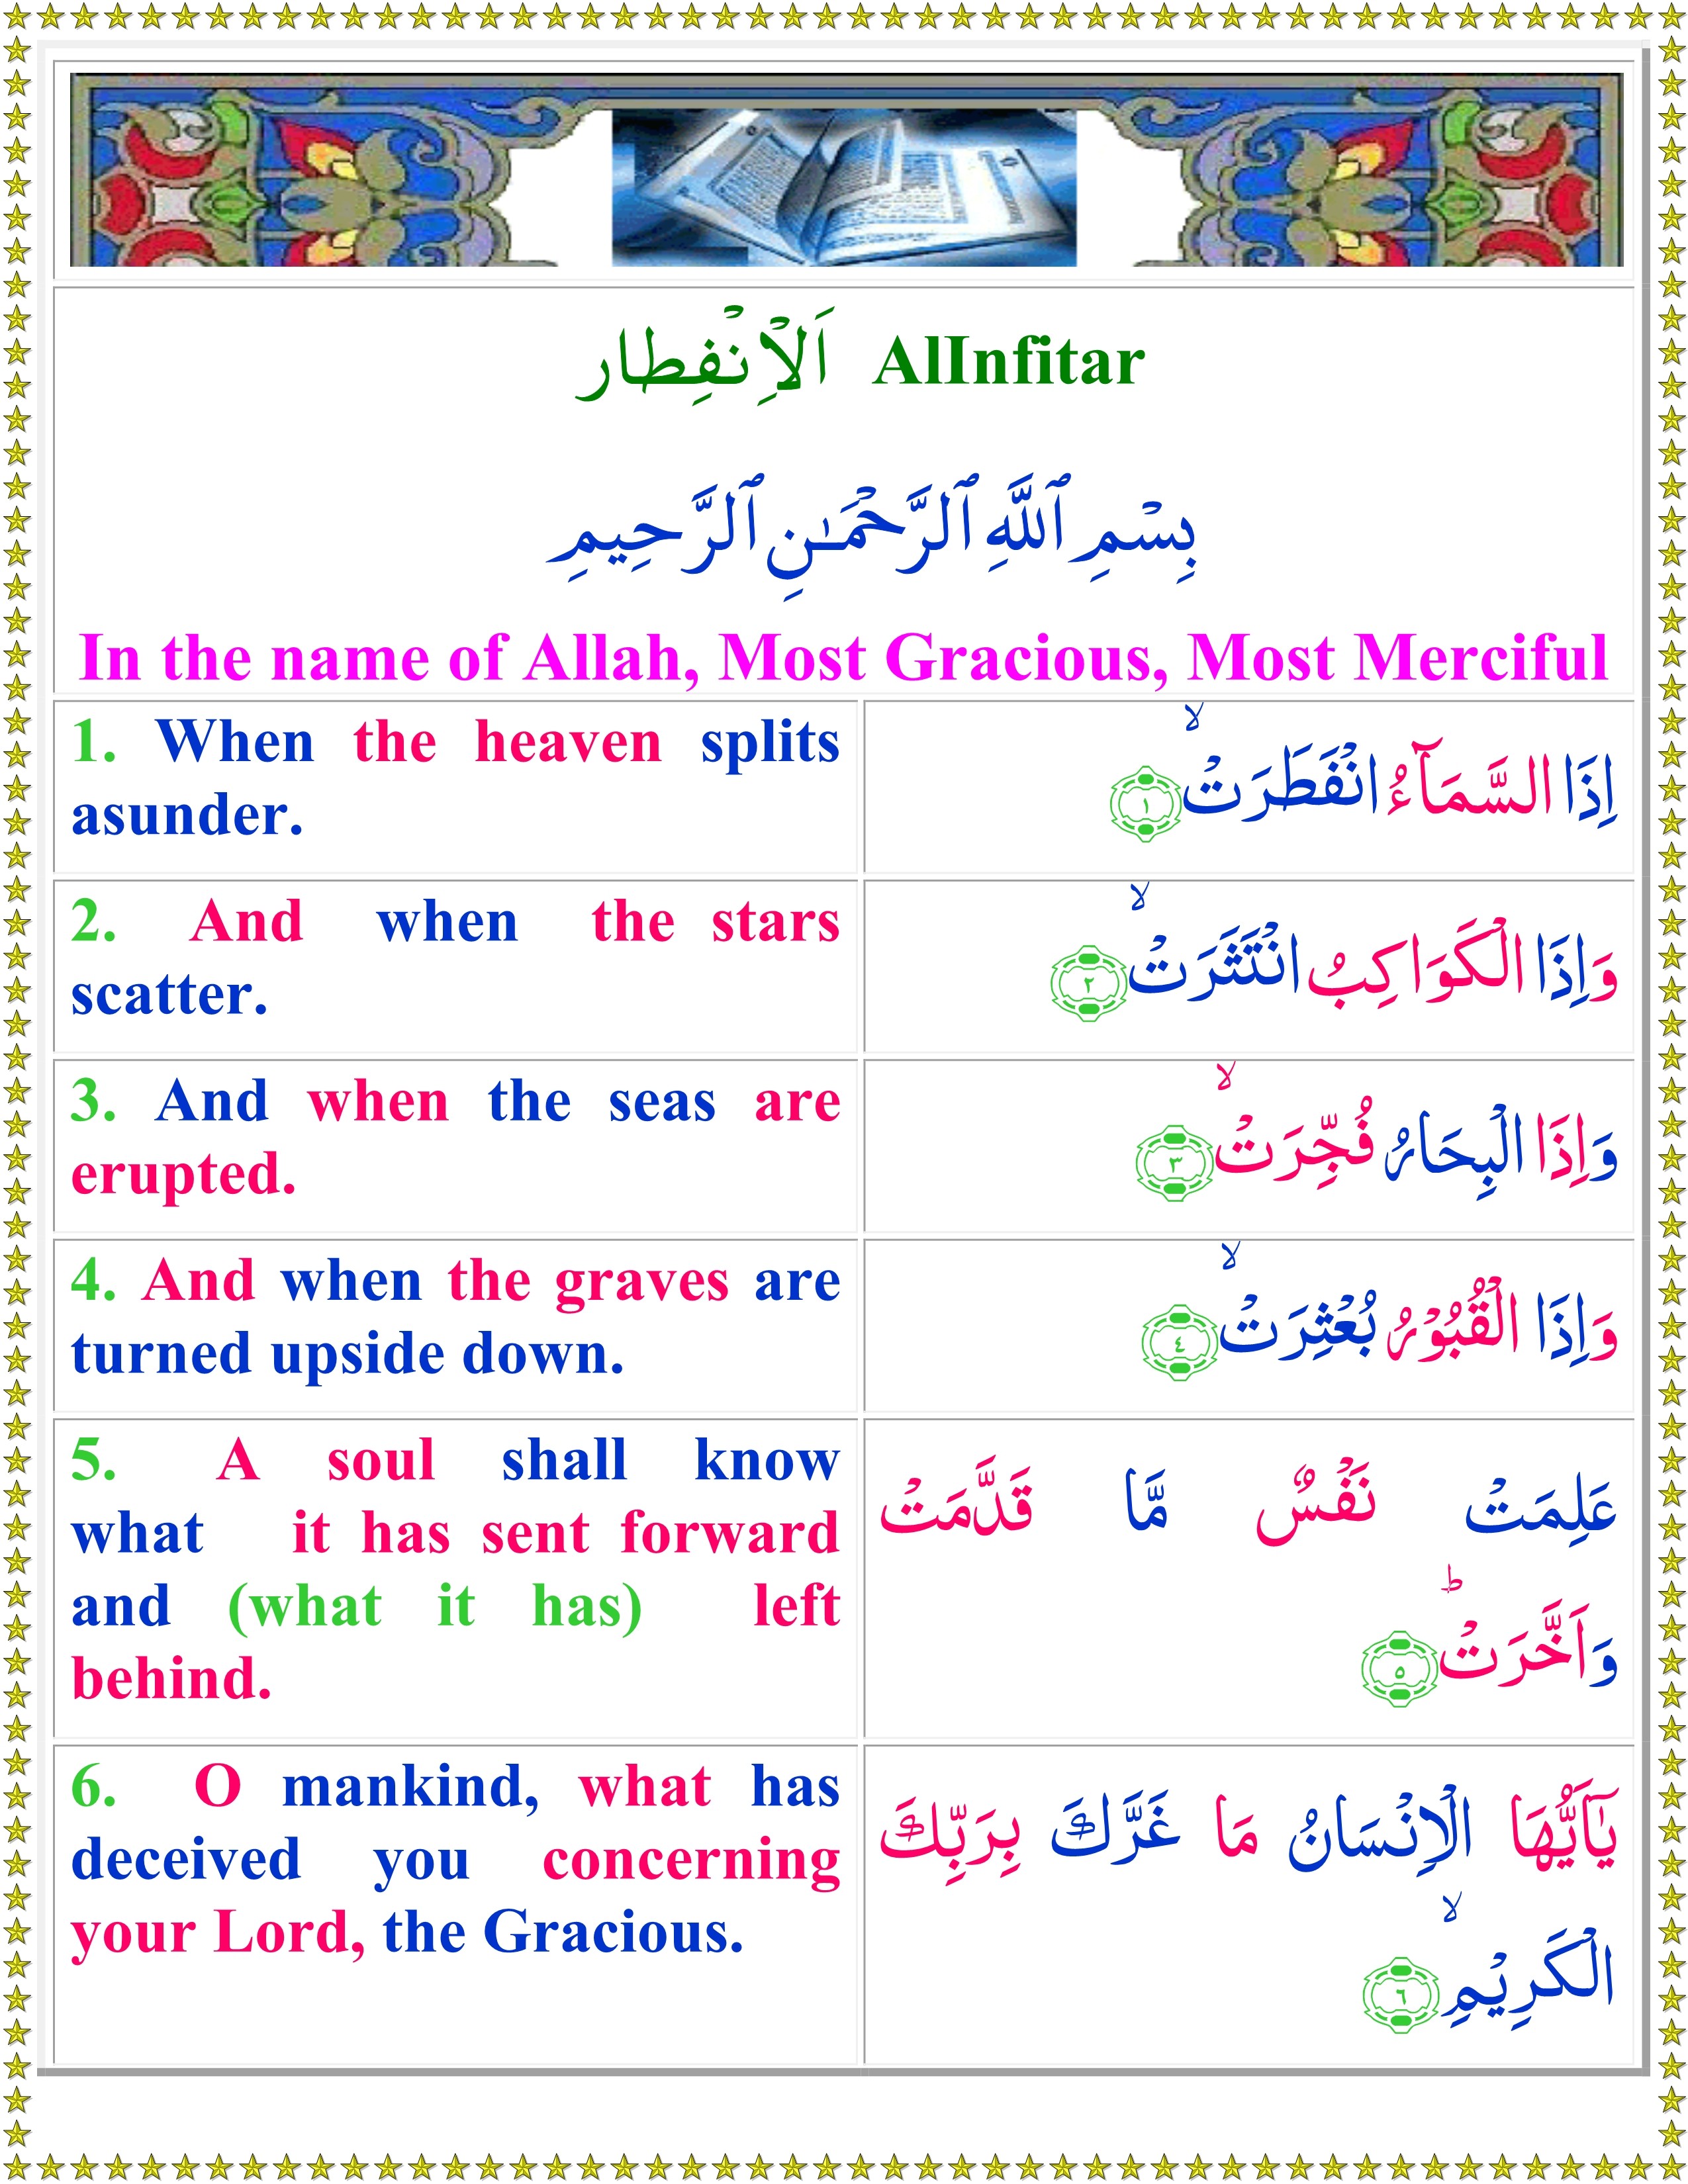 اَلْاِنْفِطار AlInfitar
بِسْمِ ٱللَّهِ ٱلرَّحْمَـٰنِ ٱلرَّحِيمِ
In the name of Allah, Most Gracious, Most Merciful
1. When the heaven splits
asunder.
اِذَا السَّمَآءُ انْفَطَرَتْۙ ١
2. And when the stars
scatter.
وَاِذَا الْكَوَاكِبُ انْتَثَرَتْۙ ٢
3. And when the seas are
erupted.
وَاِذَا الْبِحَارُ فُجِّرَتْۙ ٣
4. And when the graves are
turned upside down.
وَاِذَا الْقُبُوْرُ بُعْثِرَتْۙ ٤
5. A soul shall know
what it has sent forward
and (what it has) left
behind.
عَلِمَتْ نَفْسٌ مَّا قَدَّمَتْ
وَاَخَّرَتْؕ ٥
6. O mankind, what has
deceived you concerning
your Lord, the Gracious.
يٰۤاَيُّهَا الْاِنْسَانُ مَا غَرَّكَ بِرَبِّكَ
الْكَرِيْمِۙ ٦